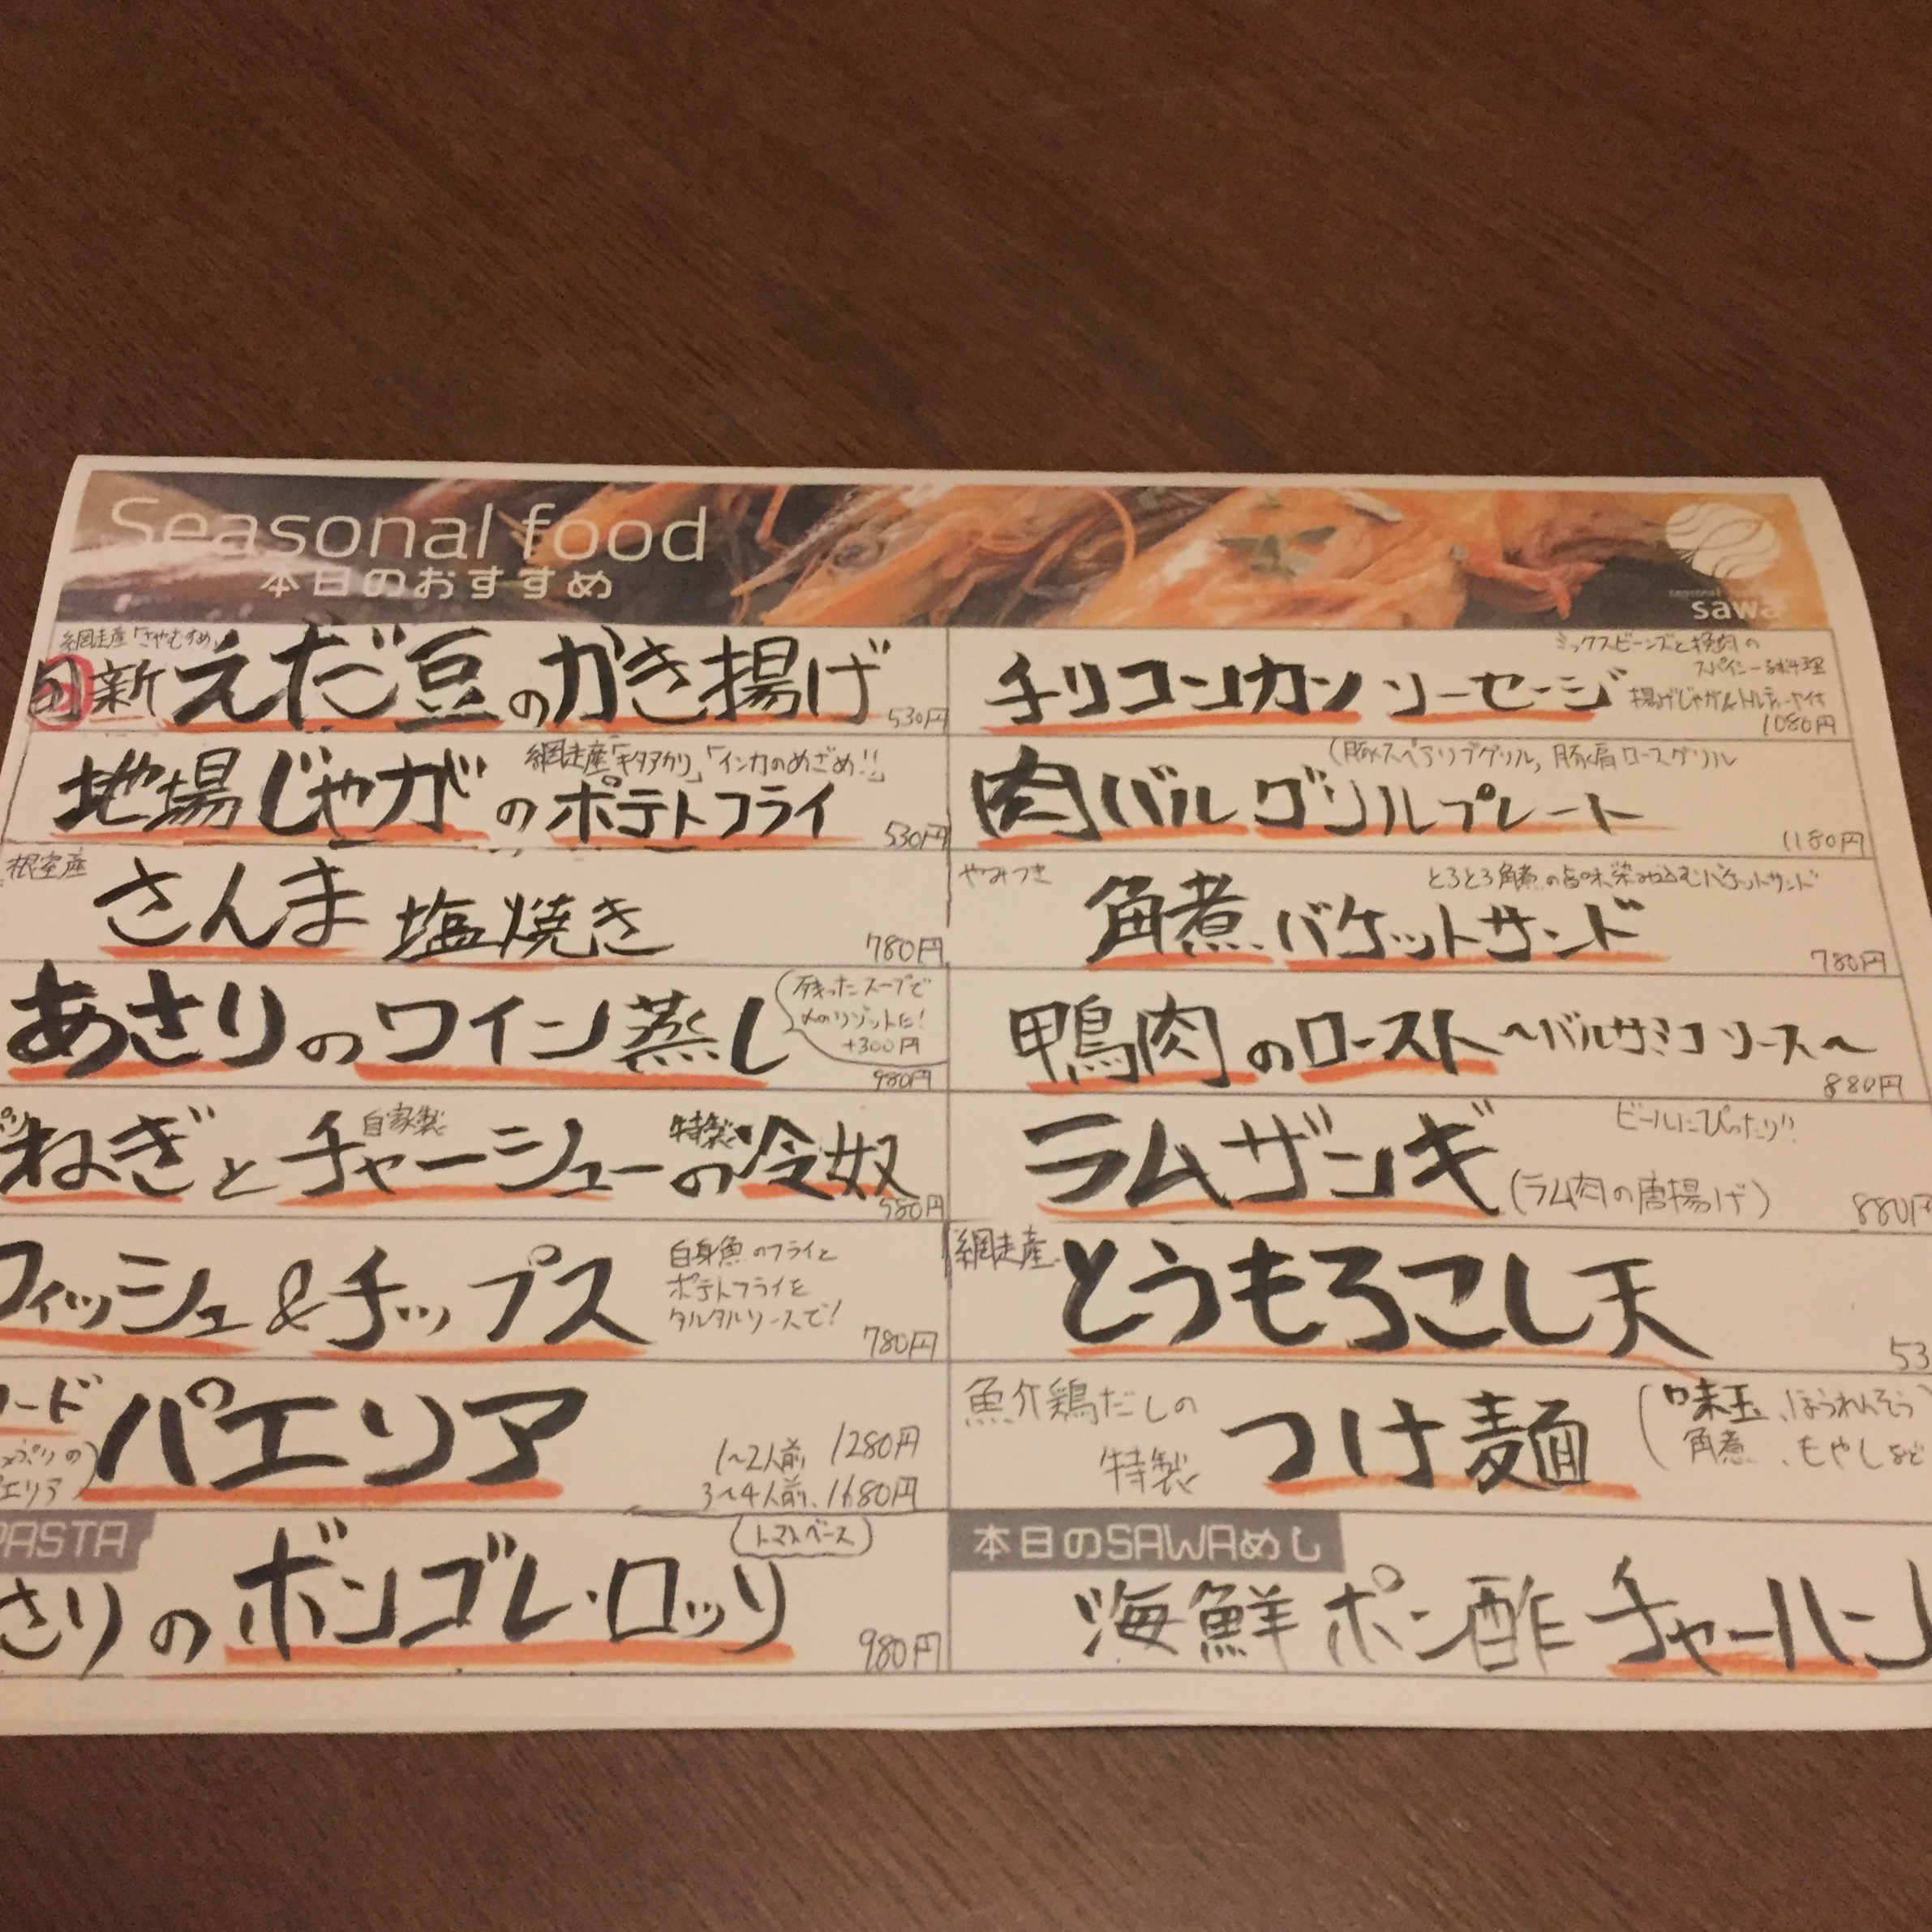 Seasonal food
本日のおすすめ
seasonal
sawa
網走産「さやむすめ」
旬 新 えだ豆のかき揚げ
530円
網走産「キタアカリ」「インカのめざめ!!」
地場じゃがのポテトフライ
530円
根室産
さんま 塩焼き
780円
あさりのワイン蒸し
残ったスープで
〆のリゾットに!
+300円
980円
自家製
特製
ねぎとチャーシューの冷奴
580円
フィッシュ&チップス
白身魚のフライと
ポテトフライを
タルタルソースで!
780円
ード
パエリア
エリア
1〜2人前 1280円
3〜4人前 1680円
PASTA
(トマトベース)
さりのボンゴレ・ロッソ
980円
ミックスビーンズと挽肉の
スパイシーな料理
チリコンカン ソーセージ
1080円
(豚スペアリブグリル, 豚肩ロースグリル
肉バルグリルプレート
1180円
やみつき
とろとろ角煮の旨味染み込むバケットサンド
角煮バケットサンド
780円
鴨肉のロースト〜バルサミコソース〜
880円
ビールにぴったり!!
ラムザンギ(ラム肉の唐揚げ)
880円
網走産
とうもろこし天
53
魚介鶏だしの
特製
つけ麺
(味玉、ほうれんそう
角煮、もやしなど
本日のSAWAめし
海鮮ポン酢チャーハン